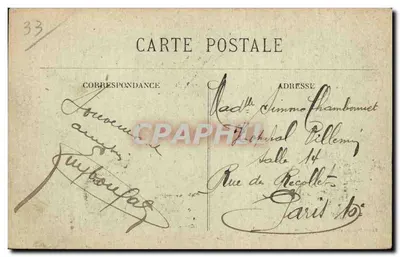 33
CARTE POSTALE
CORRESPONDANCE
ADRESSE
Souvenir
Madlle Simone Chambonnet
Hôpital Villemin
Salle 14
Rue de Recollets
Paris 10e
CPARAMA